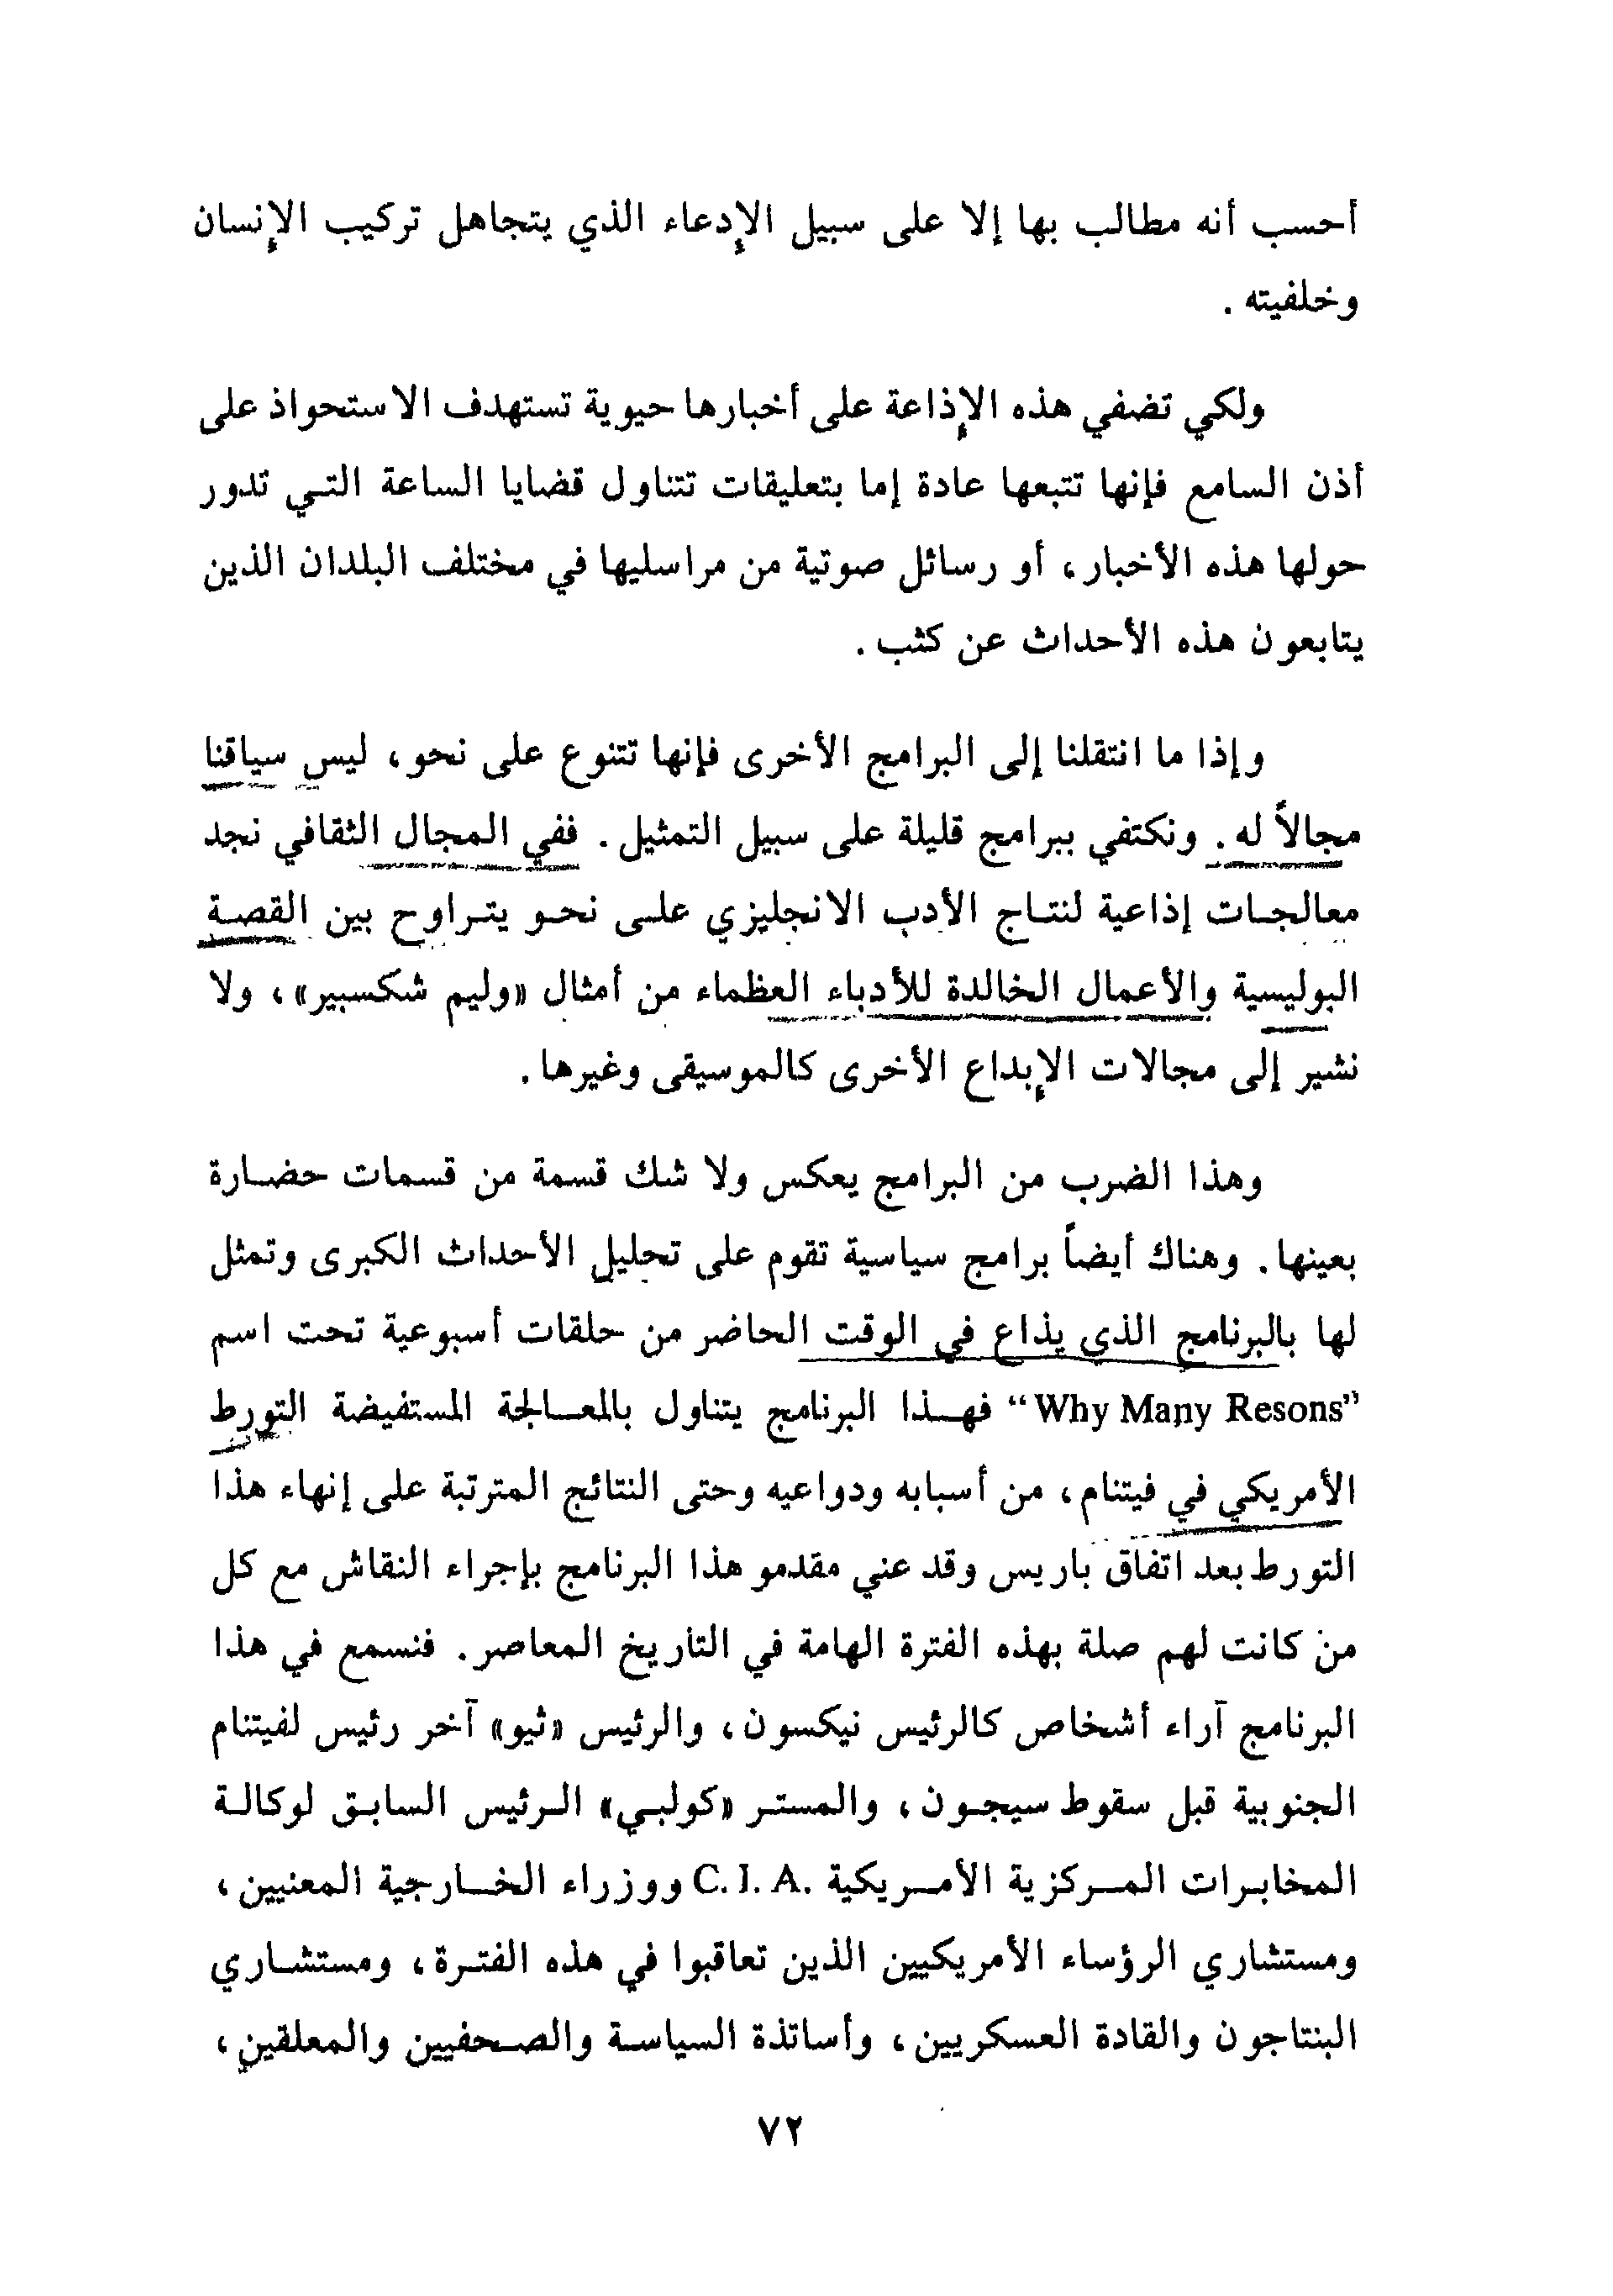 أحسب أنه مطالب بها إلا على سبيل الإدعاء الذي يتجاهل تركيب الإنسان
وخلفيته .
ولكي تضفي هذه الإذاعة على أخبارها حيوية تستهدف الاستحواذ على
أذن السامع فإنها تتبعها عادة إما بتعليقات تتناول قضايا الساعة التي تدور
حولها هذه الأخبار، أو رسائل صوتية من مراسليها في مختلف البلدان الذين
يتابعون هذه الأحداث عن كثب .
وإذا ما انتقلنا إلى البرامج الأخرى فإنها تتنوع على نحو، ليس سياقنا
مجالاً له . ونكتفي ببرامج قليلة على سبيل التمثيل . ففي المجال الثقافي نجد
معالجات إذاعية لنتاج الأدب الانجليزي على نحو يتراوح بين القصة
البوليسية والأعمال الخالدة للأدباء العظماء من أمثال «وليم شكسبير»، ولا
نشير إلى مجالات الإبداع الأخرى كالموسيقى وغيرها .
وهذا الضرب من البرامج يعكس ولا شك قسمة من قسمات حضارة
بعينها . وهناك أيضاً برامج سياسية تقوم على تحليل الأحداث الكبرى وتمثل
لها بالبرنامج الذي يذاع في الوقت الحاضر من حلقات أسبوعية تحت اسم
“Why Many Resons” فهذا البرنامج يتناول بالمعالجة المستفيضة التورط
الأمريكي في فيتنام، من أسبابه ودواعيه وحتى النتائج المترتبة على إنهاء هذا
التورط بعد اتفاق باريس وقد عني مقدمو هذا البرنامج بإجراء النقاش مع كل
من كانت لهم صلة بهذه الفترة الهامة في التاريخ المعاصر . فنسمع في هذا
البرنامج آراء أشخاص كالرئيس نيكسون، والرئيس «ثيو» آخر رئيس لفيتنام
الجنوبية قبل سقوط سيجون، والمستر «كولبي» الرئيس السابق لوكالة
المخابرات المركزية الأمريكية C. I. A. ووزراء الخارجية المعنيين،
ومستشاري الرؤساء الأمريكيين الذين تعاقبوا في هذه الفترة، ومستشاري
البنتاجون والقادة العسكريين، وأساتذة السياسة والصحفيين والمعلقين،
٧٢